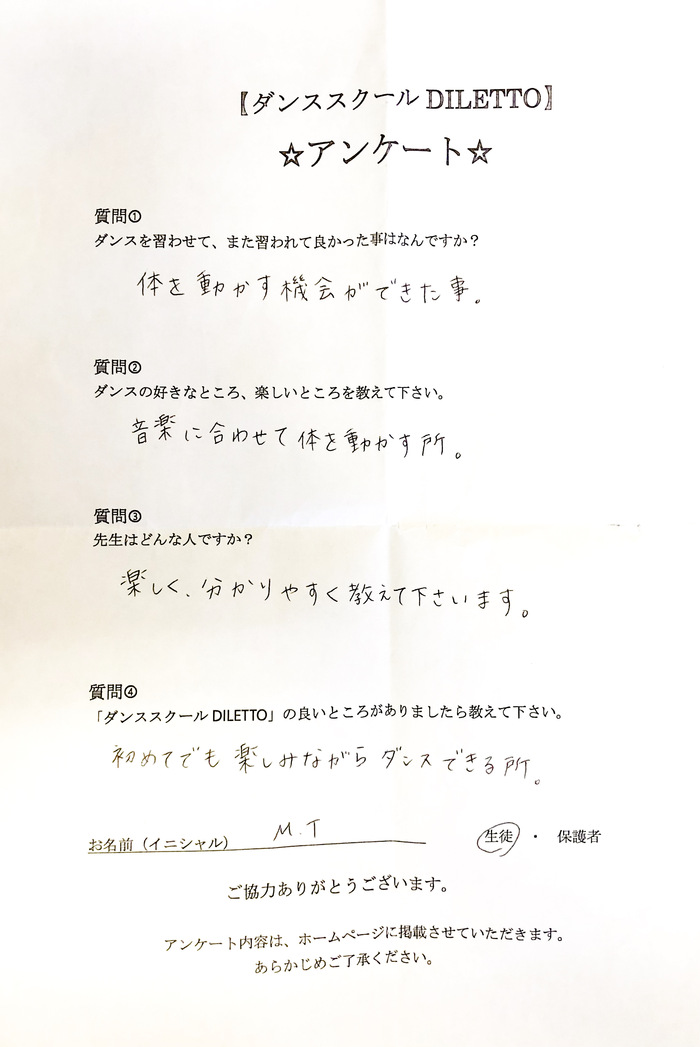 〖ダンススクール DILETTO〗
☆アンケート☆
質問①
ダンスを習わせて、また習われて良かった事はなんですか?
体を動かす機会ができた事。
質問②
ダンスの好きなところ、楽しいところを教えて下さい。
音楽に合わせて体を動かす所。
質問③
先生はどんな人ですか?
楽しく、分かりやすく教えて下さいます。
質問④
「ダンススクール DILETTO」の良いところがありましたら教えて下さい。
初めてでも楽しみながらダンスできる所。
お名前（イニシャル） M.T 生徒 ・ 保護者
ご協力ありがとうございます。
アンケート内容は、ホームページに掲載させていただきます。
あらかじめご了承ください。